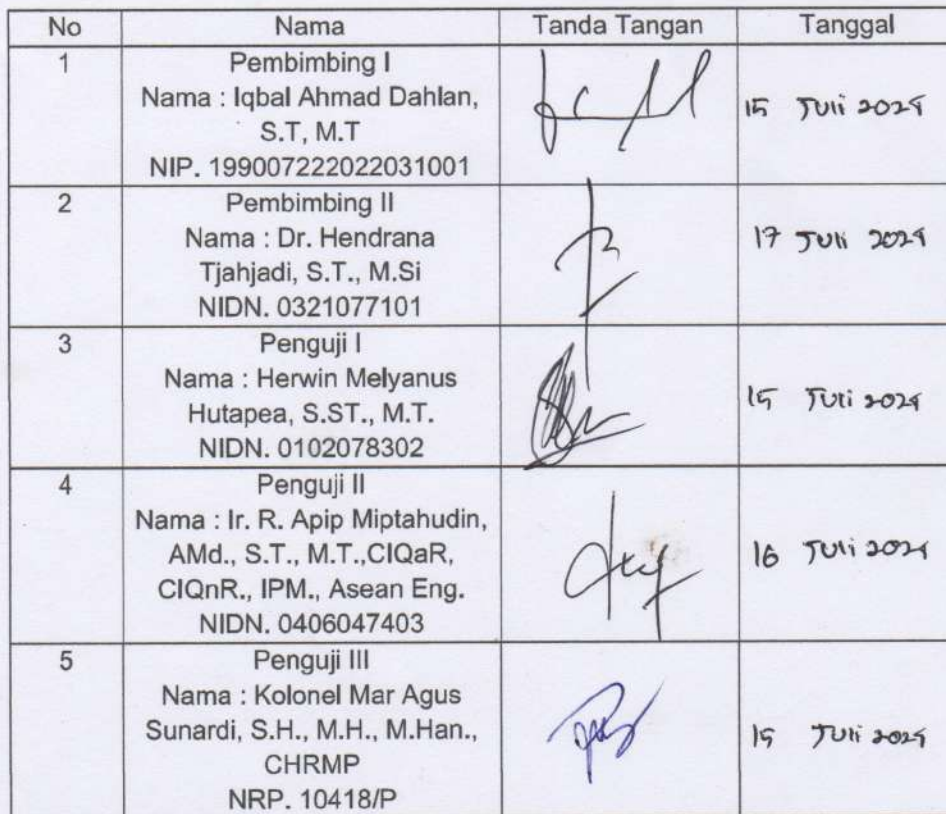 No Nama Tanda Tangan Tanggal
1 Pembimbing I
Nama : Iqbal Ahmad Dahlan,
S.T, M.T
NIP. 199007222022031001
15 Juli 2024
2 Pembimbing II
Nama : Dr. Hendrana
Tjahjadi, S.T., M.Si
NIDN. 0321077101
17 Juli 2024
3 Penguji I
Nama : Herwin Melyanus
Hutapea, S.ST., M.T.
NIDN. 0102078302
15 Juli 2024
4 Penguji II
Nama : Ir. R. Apip Miptahudin,
AMd., S.T., M.T.,CIQaR,
CIQnR., IPM., Asean Eng.
NIDN. 0406047403
16 Juli 2024
5 Penguji III
Nama : Kolonel Mar Agus
Sunardi, S.H., M.H., M.Han.,
CHRMP
NRP. 10418/P
15 Juli 2024